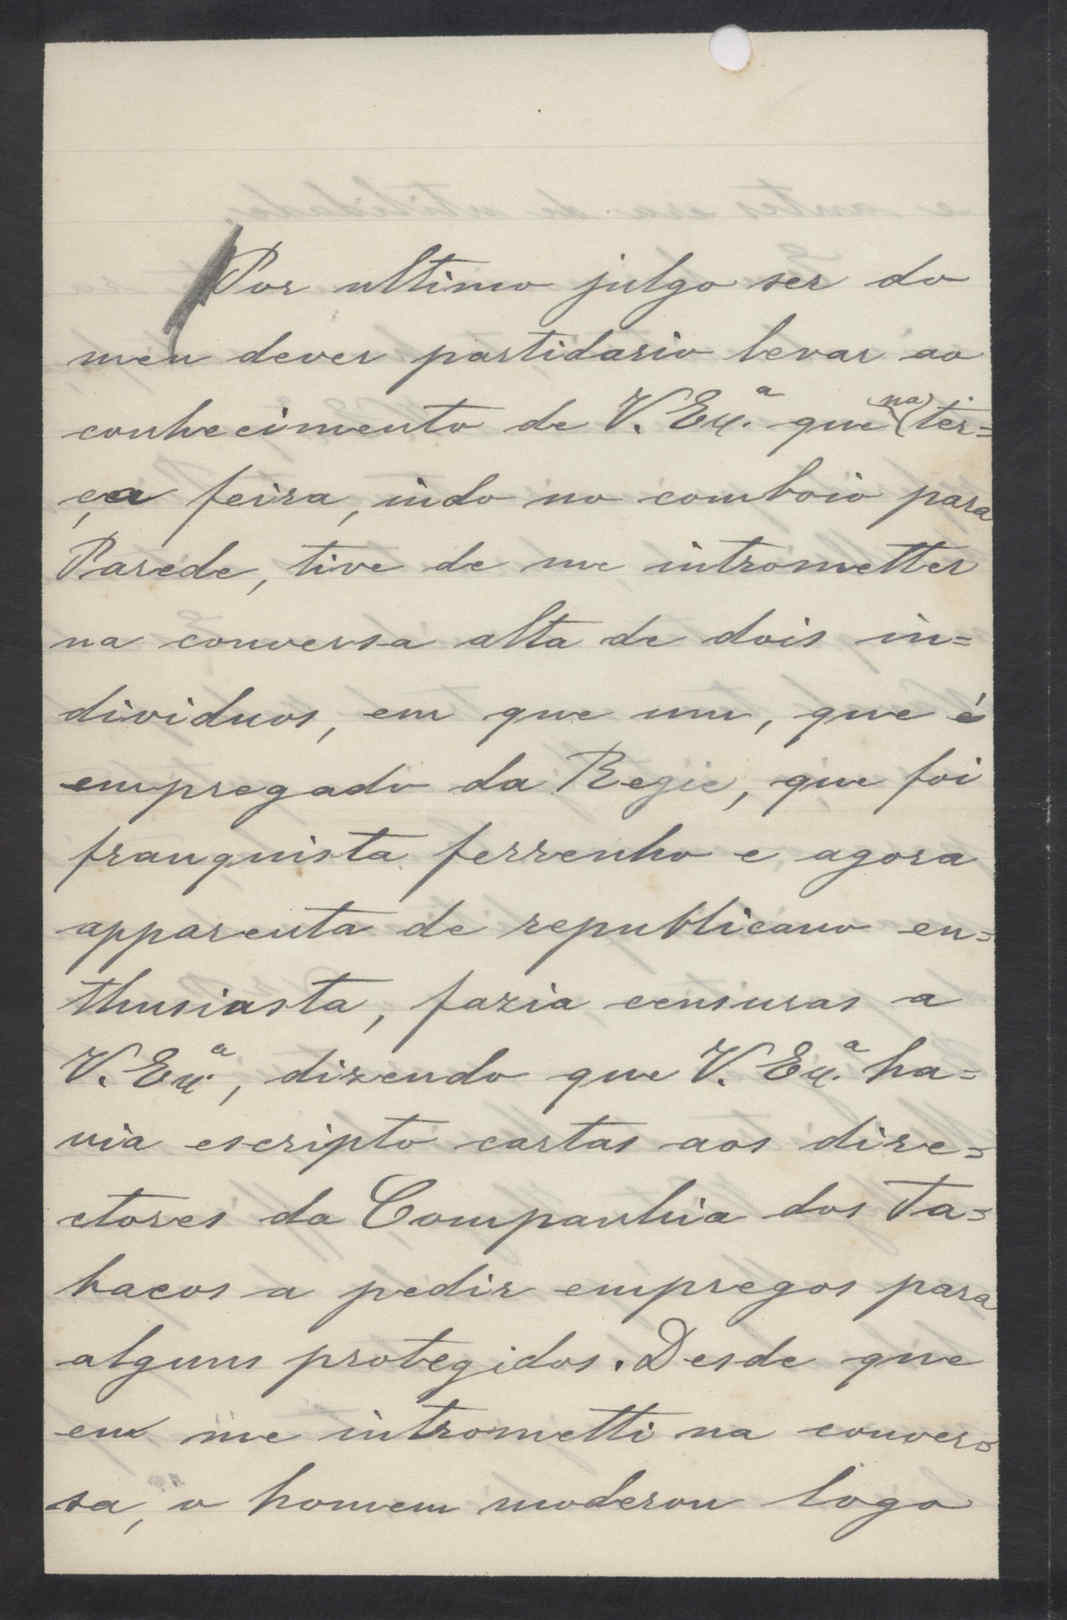 Por ultimo julgo ser do
meu dever partidario levar ao
conhecimento de V. Ex.ª que na ter=
ça feira, indo no comboio para
Parede, tive de me intrometter
na conversa alta de dois in=
dividuos, em que um, que é
empregado da Regie, que foi
franquista ferrenho e agora
apparenta de republicano en=
thusiasta, fazia censuras a
V. Ex.ª, dizendo que V. Ex.ª ha=
via escripto cartas aos dire=
ctores da Companhia dos Ta=
bacos a pedir empregos para
alguns protegidos. Desde que
eu me intrometti na conver=
sa, o homem moderou logo